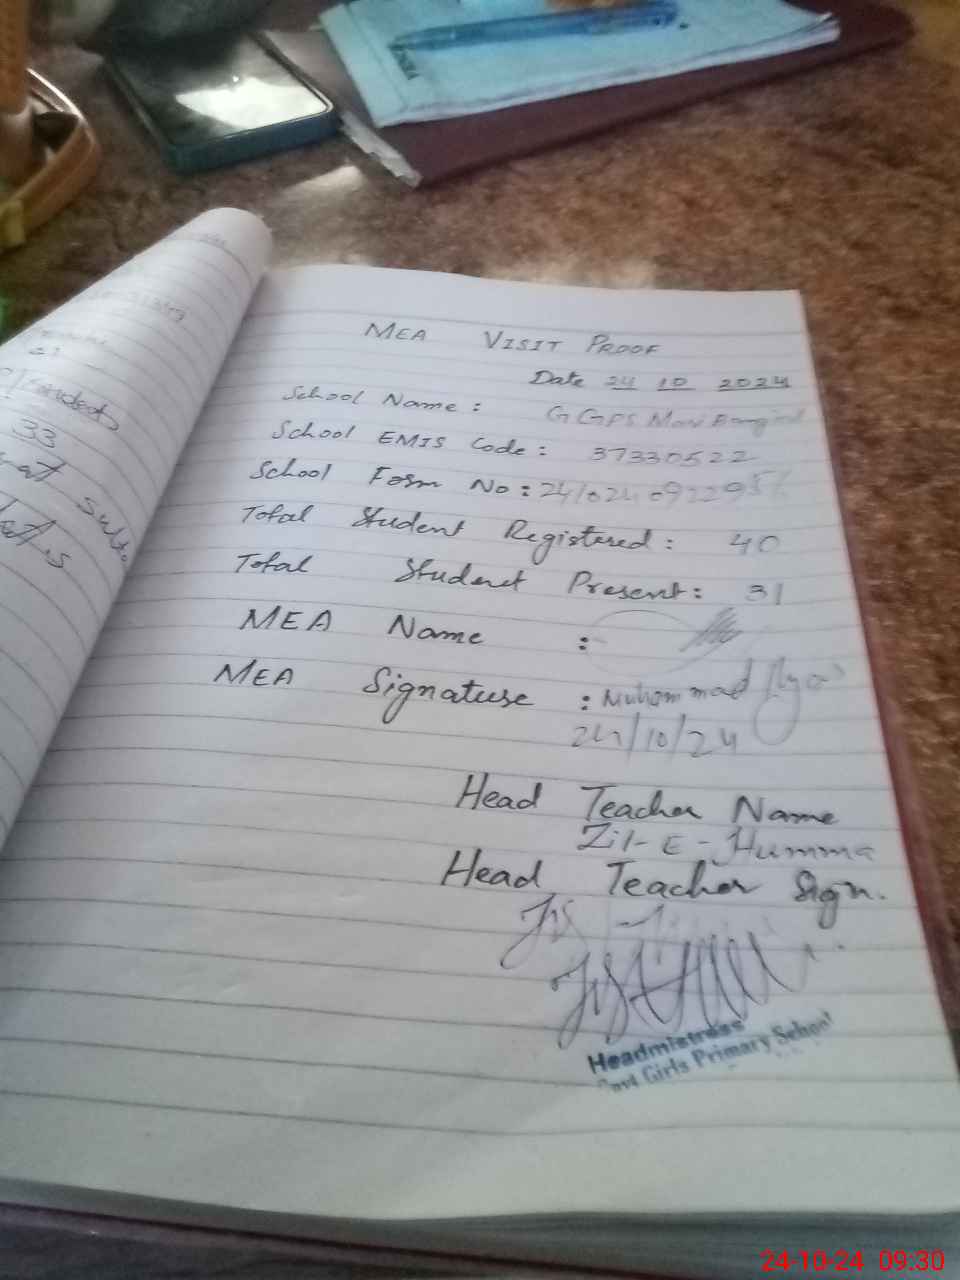 MEA VISIT PROOF
Date 24 10 2024
School Name : GGPS
School EMIS Code : 37330522
School Form No :
Total Student Registered : 40
Total Student Present : 31
MEA Name :
MEA Signature : Muhammad Ilyas
24/10/24
Head Teacher Name
Zil-E-Humma
Head Teacher Sign.
Headmistress
Govt Girls Primary School
33
24-10-24 09:30